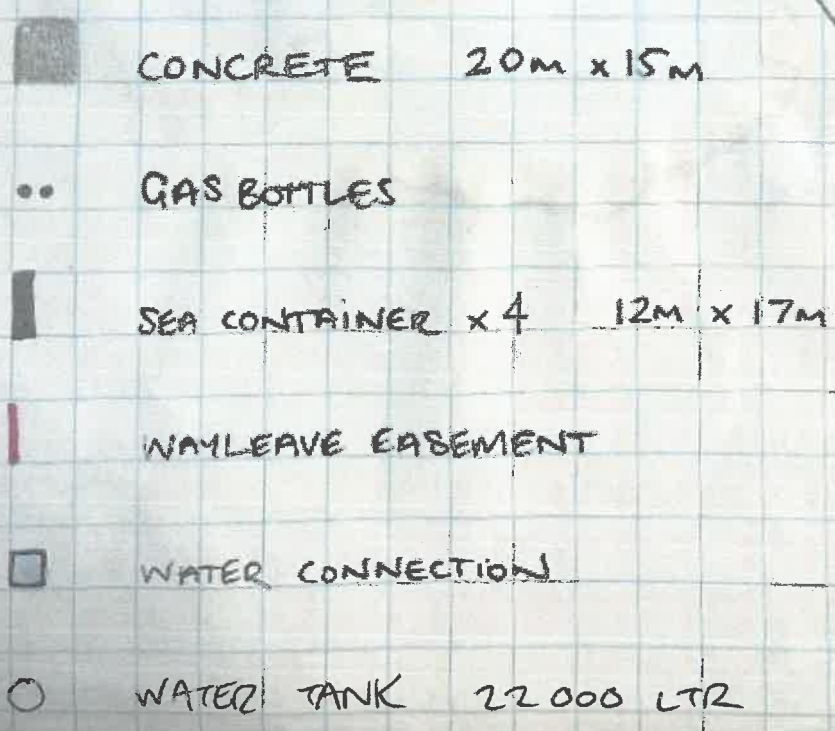 CONCRETE 20m x 15m
GAS BOTTLES
SEA CONTAINER x 4 12m x 17m
WAYLEAVE EASEMENT
WATER CONNECTION
WATER TANK 22000 LTR